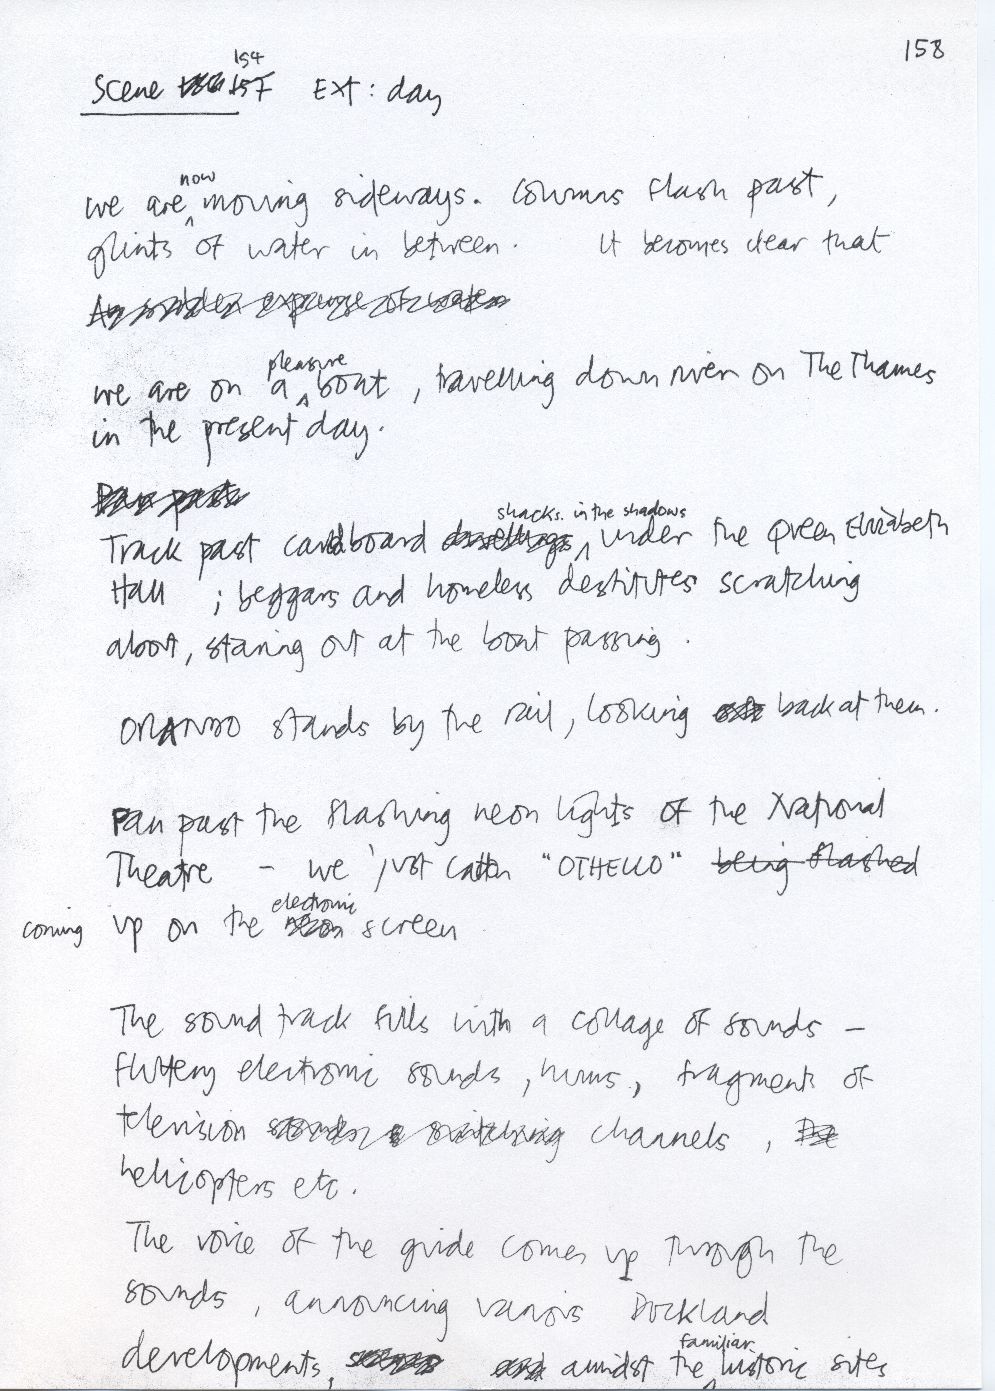 158
Scene 154 Ext: day
we are now moving sideways. Columns flash past,
glints of water in between. It becomes clear that
we are on a pleasure boat, travelling down river on The Thames
in the present day.
Track past cardboard shacks. in the shadows under the Queen Elizabeth
Hall ; beggars and homeless destitutes scratching
about, staring out at the boat passing.
ORLANDO stands by the rail, looking back at them.
Pan past the flashing neon lights of the National
Theatre - we just catch "OTHELLO" being flashed
coming up on the electronic screen
The sound track fills with a collage of sounds -
fluttery electronic sounds, hums, fragments of
television channels,
helicopters etc.
The voice of the guide comes up through the
sounds, announcing various Dockland
developments, amidst the familiar historic sites